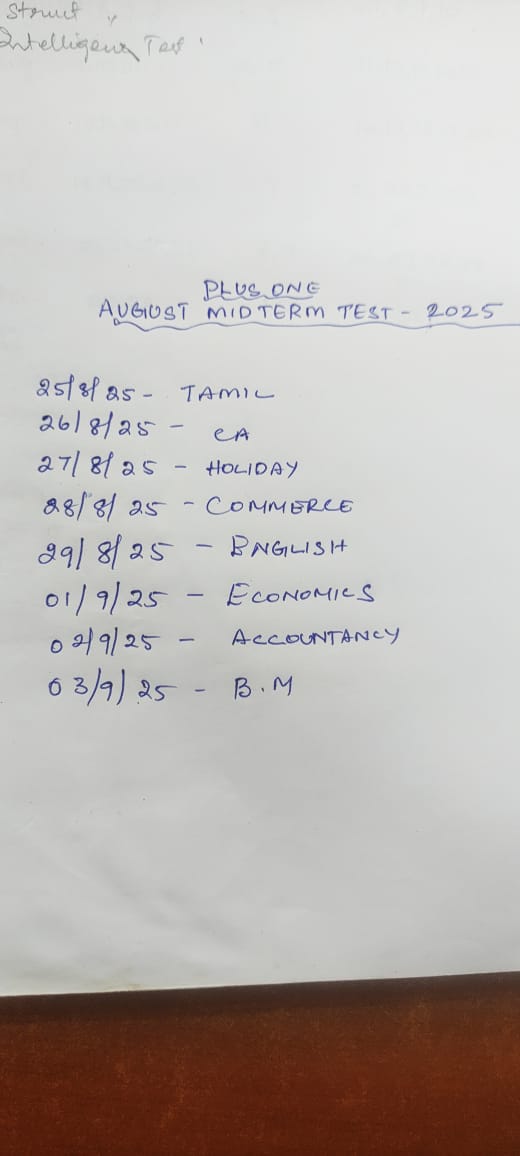 Struct "
Intelligence Test
PLUS ONE
AUGUST MIDTERM TEST - 2025
25/8/25 - TAMIL
26/8/25 - CA
27/8/25 - HOLIDAY
28/8/25 - COMMERCE
29/8/25 - ENGLISH
01/9/25 - ECONOMICS
02/9/25 - ACCOUNTANCY
03/9/25 - B.M